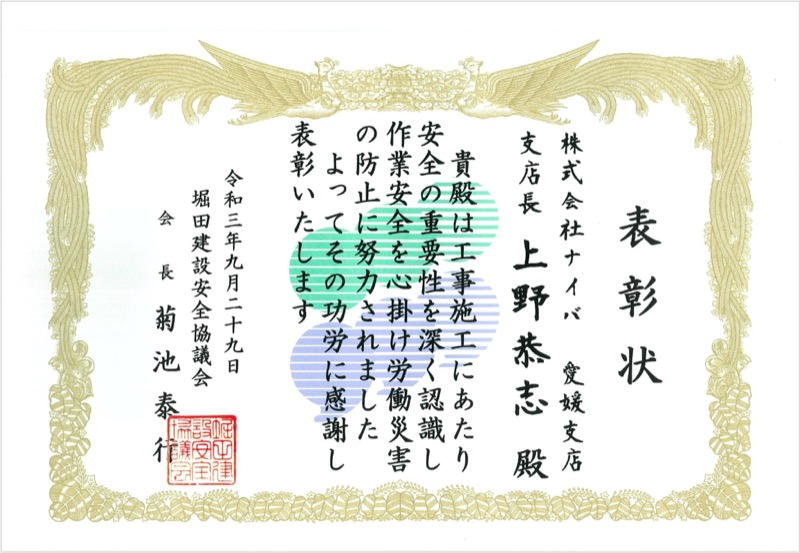 表彰状
株式会社ナイバ 愛媛支店
支店長 上野恭志 殿
貴殿は工事施工にあたり
安全の重要性を深く認識し
作業安全を心掛け労働災害
の防止に努力されました
よってその功労に感謝し
表彰いたします
令和三年九月二十九日
堀田建設安全協議会
会長 菊池泰行
堀田建
設安全
協議会